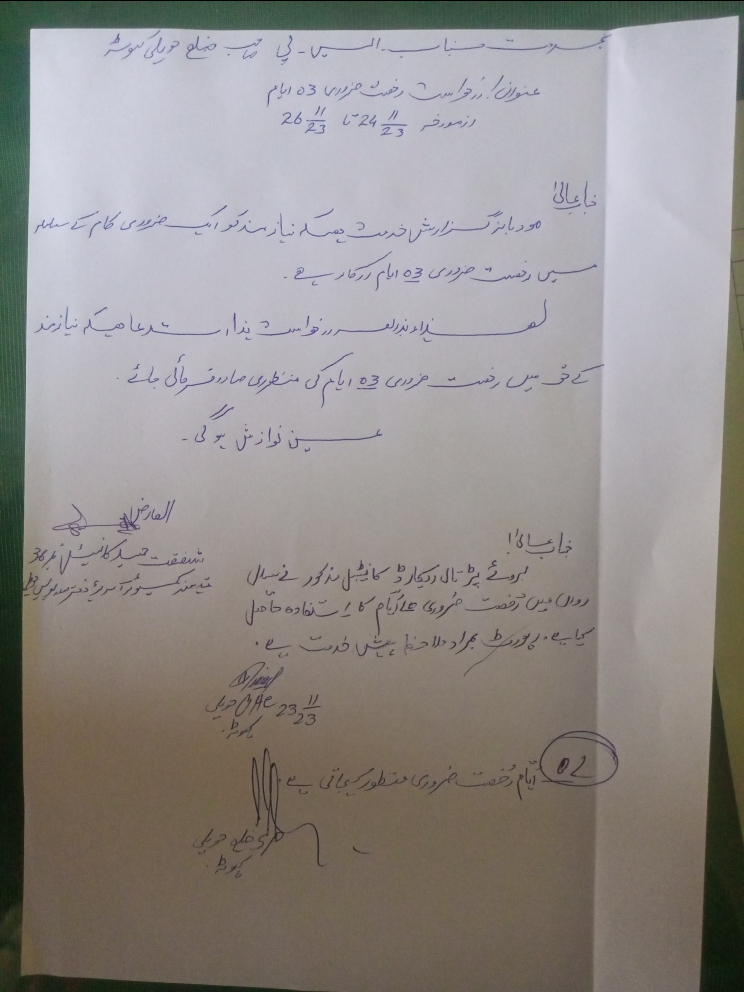 بخدمت جناب ایس۔ پی صاحب ضلع حویلی کہوٹہ
عنوان! درخواست رخصت ضروری 03 ایام
ازمورخہ 24 11/23 تا 26 11/23
جناب عالیٰ
مودبانہ گزارش خدمت ہیکہ نیازمند کو ایک ضروری کام کے سلسلہ
میں رخصت ضروری 03 ایام درکار ہے۔
لھذا بذریعہ درخواست ہذا استدعا ھیکہ نیازمند
کے حق میں رخصت ضروری 03 ایام کی منظوری صادر فرمائی جائے۔
عین نوازش ہو گی۔
العارض
شفقت کانسٹیبل نمبر 36
جناب عالیٰ!
بروئے پڑتال ریکارڈ کانسٹیبل مذکور نے سال
رواں میں رُخصت ضروری ایّام کا استفادہ حاصل
کیا ہے۔ رپورٹ بمراد ملاحظہ پیش خدمت ہے۔
OHC حویلی 23 11/23
کہوٹہ
02 ایّام رُخصت ضروری منظور کیجاتی ہے۔
ضلع حویلی
کہوٹہ